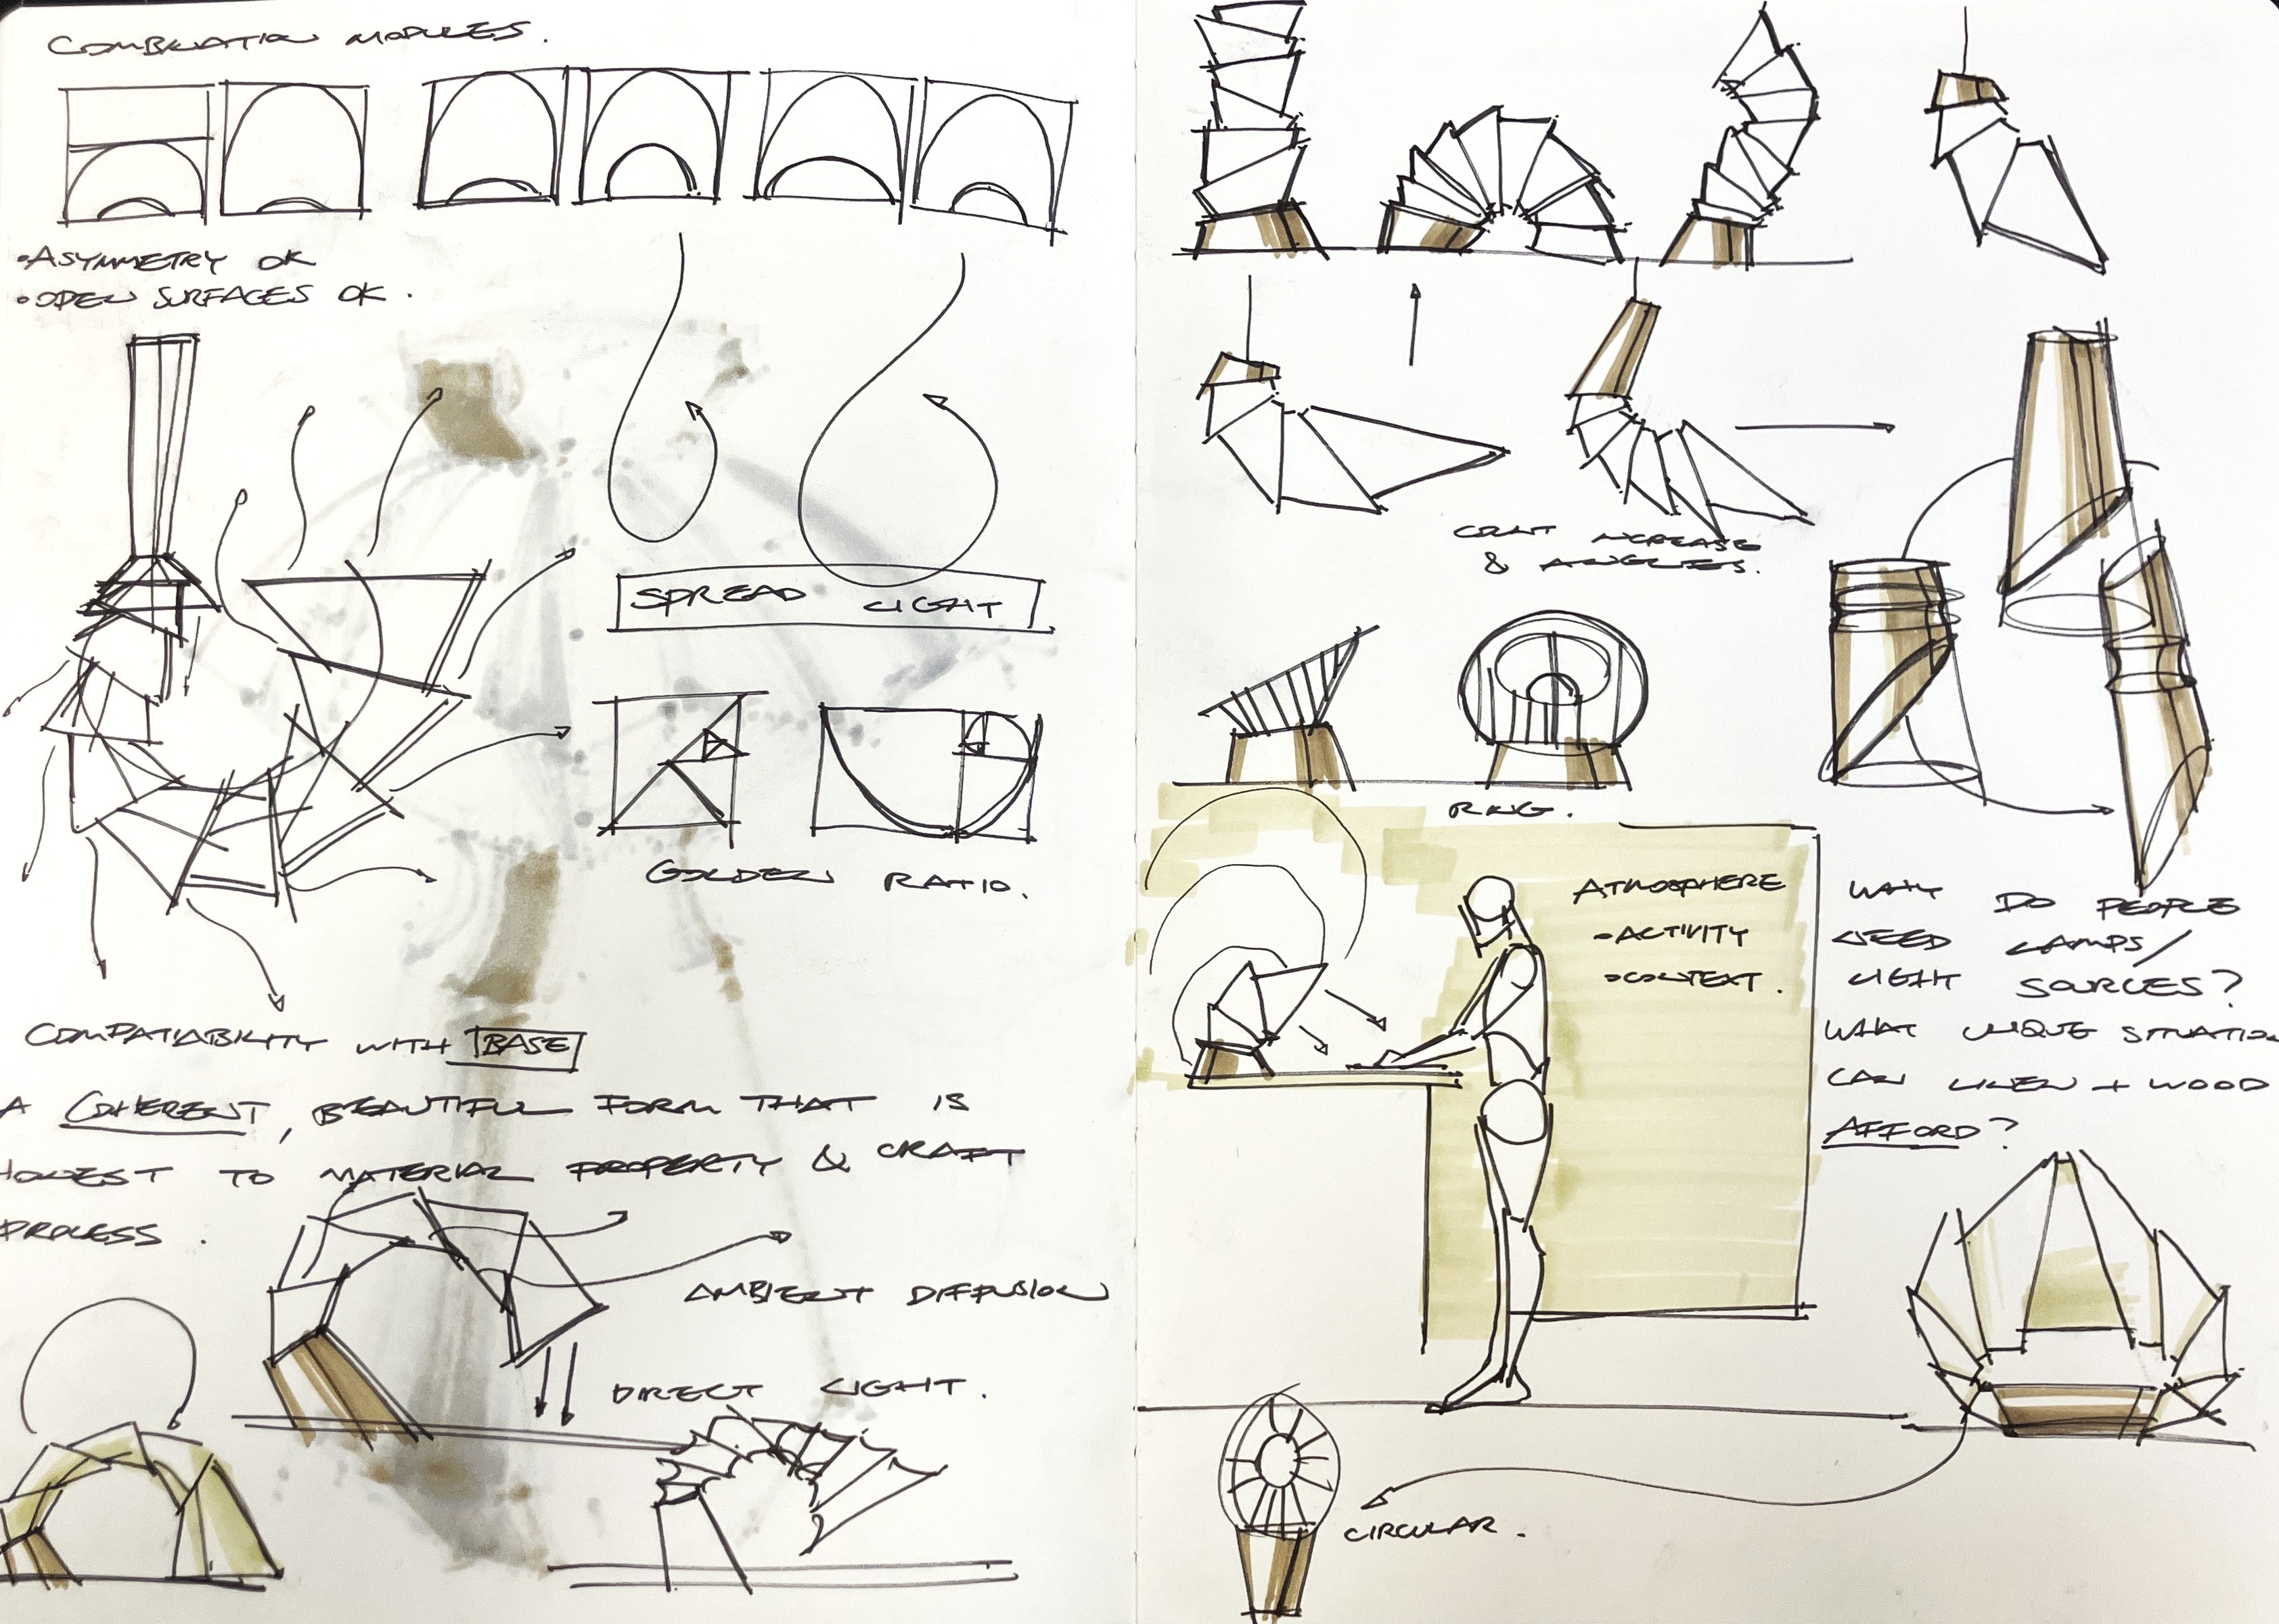 COMBINATION MODULES.
• ASYMMETRY OK
• OPEN SURFACES OK.
SPREAD LIGHT
GOLDEN RATIO.
COMPATIABILITY WITH BASE
A COHERENT, BEAUTIFUL FORM THAT IS
HONEST TO MATERIAL PROPERTY & CRAFT
PROCESS.
AMBIENT DIFFUSION
DIRECT LIGHT.
COUNT INCREASE
& ANGLES.
RING.
ATMOSPHERE
• ACTIVITY
• CONTEXT.
WHY DO PEOPLE
NEED LAMPS/
LIGHT SOURCES?
WHAT UNIQUE SITUATION
CAN LINEN + WOOD
AFFORD?
CIRCULAR.